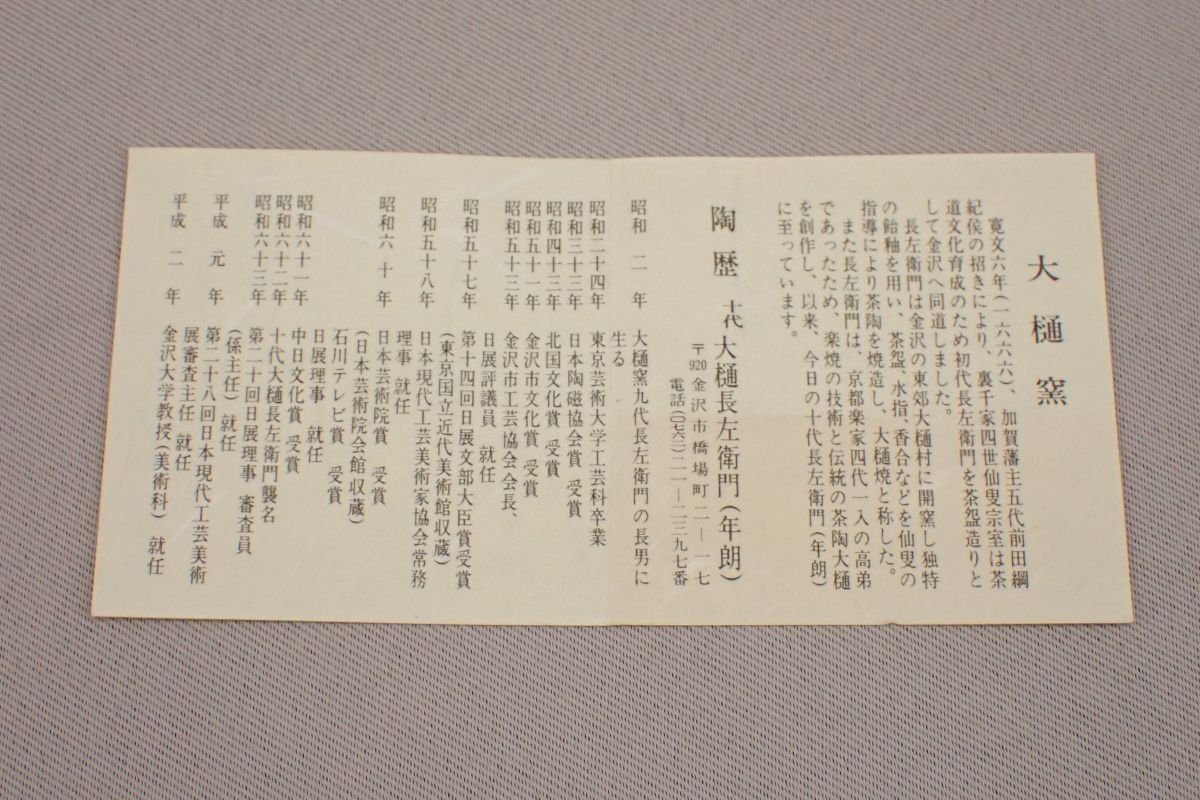 大樋窯
寛文六年(一六六六)、加賀藩主五代前田綱
紀侯の招きにより、裏千家四世仙叟宗室は茶
道文化育成のため初代長左衛門を茶盌造りと
して金沢へ同道しました。
長左衛門は金沢の東郊大樋村に開窯し独特
の飴釉を用い、茶盌、水指、香合などを仙叟の
指導により茶陶を焼造し、大樋焼と称した。
また長左衛門は、京都楽家四代一入の高弟
であったため、楽焼の技術と伝統の茶陶大樋
を創作し、以来、今日の十代長左衛門(年朗)
に至っています。
陶歴 十代 大樋長左衛門(年朗)
〒920 金沢市橋場町二―一七
電話(〇七六二)二一―二三九七番
昭和二年 大樋窯九代長左衛門の長男に
生る
昭和二十四年 東京芸術大学工芸科卒業
昭和三十三年 日本陶磁協会賞 受賞
昭和四十三年 北国文化賞 受賞
昭和五十一年 金沢市文化賞 受賞
昭和五十三年 金沢市工芸協会会長、
日展評議員 就任
昭和五十七年 第十四回日展文部大臣賞受賞
(東京国立近代美術館収蔵)
昭和五十八年 日本現代工芸美術家協会常務
理事 就任
昭和六十年 日本芸術院賞 受賞
(日本芸術院会館収蔵)
石川テレビ賞 受賞
昭和六十一年 日展理事 就任
中日文化賞 受賞
昭和六十二年 十代大樋長左衛門襲名
昭和六十三年 第二十回日展理事 審査員
(係主任) 就任
平成元年 第二十八回日本現代工芸美術
展審査主任 就任
平成二年 金沢大学教授(美術科) 就任